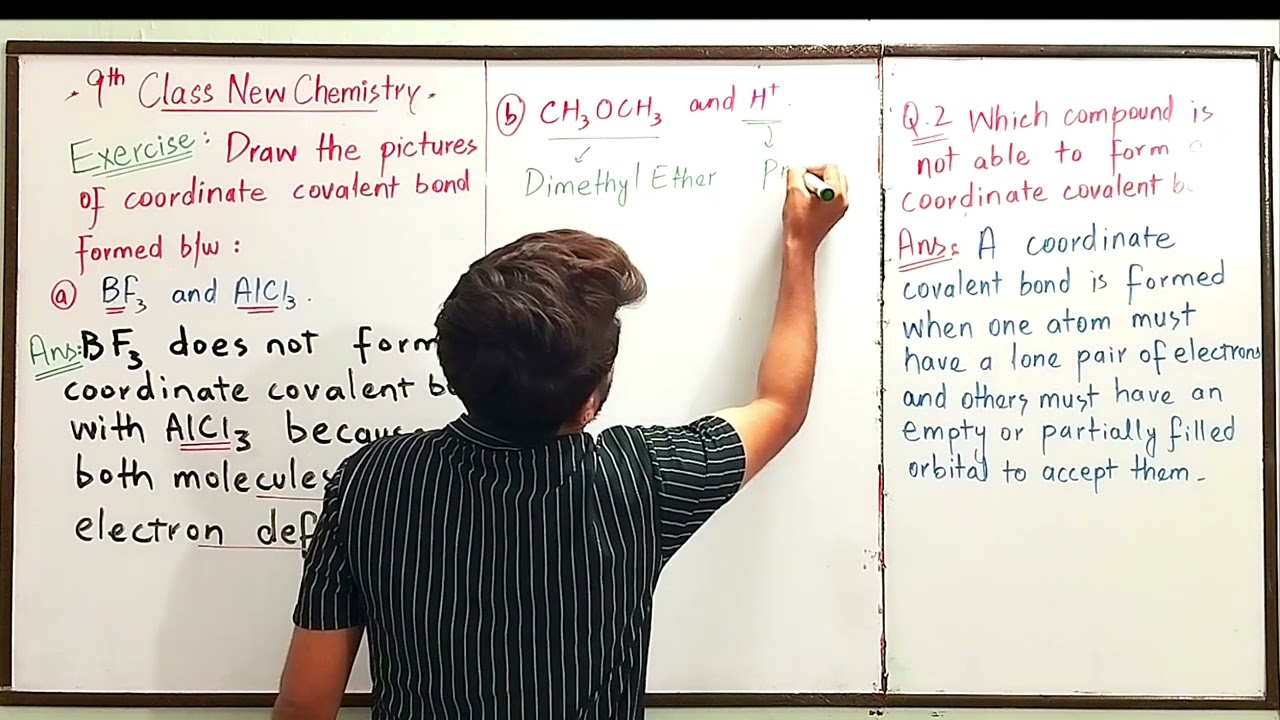 9th Class New Chemistry.
Exercise: Draw the pictures
of coordinate covalent bond
formed b/w:
ⓐ BF₃ and AlCl₃.
Ans: BF₃ does not form
coordinate covalent
with AlCl₃
both molecules
electron
ⓑ CH₃OCH₃ and H⁺.
Dimethyl Ether
Q.2 Which compound is
not able to form
coordinate covalent
Ans: A coordinate
covalent bond is formed
when one atom must
have a lone pair of electrons
and others must have an
empty or partially filled
orbital to accept them.